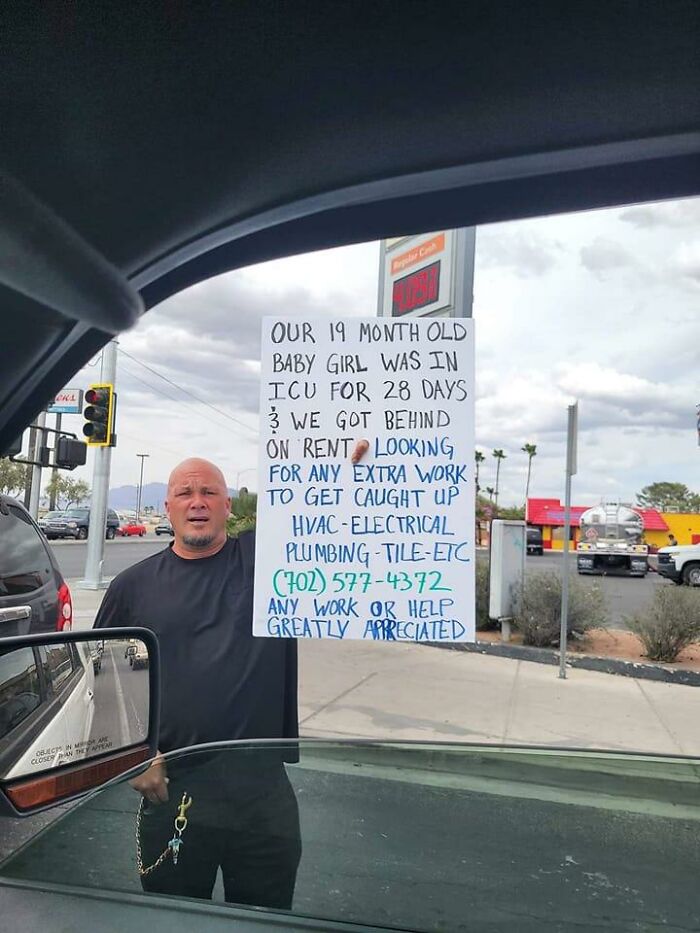 Regular Cash
OUR 19 MONTH OLD
BABY GIRL WAS IN
ICU FOR 28 DAYS
& WE GOT BEHIND
ON RENT. LOOKING
FOR ANY EXTRA WORK
TO GET CAUGHT UP
HVAC-ELECTRICAL
PLUMBING-TILE-ETC
(702) 577-4372
ANY WORK OR HELP
GREATLY APPRECIATED
OBJECTS IN MIRROR ARE
CLOSER THAN THEY APPEAR